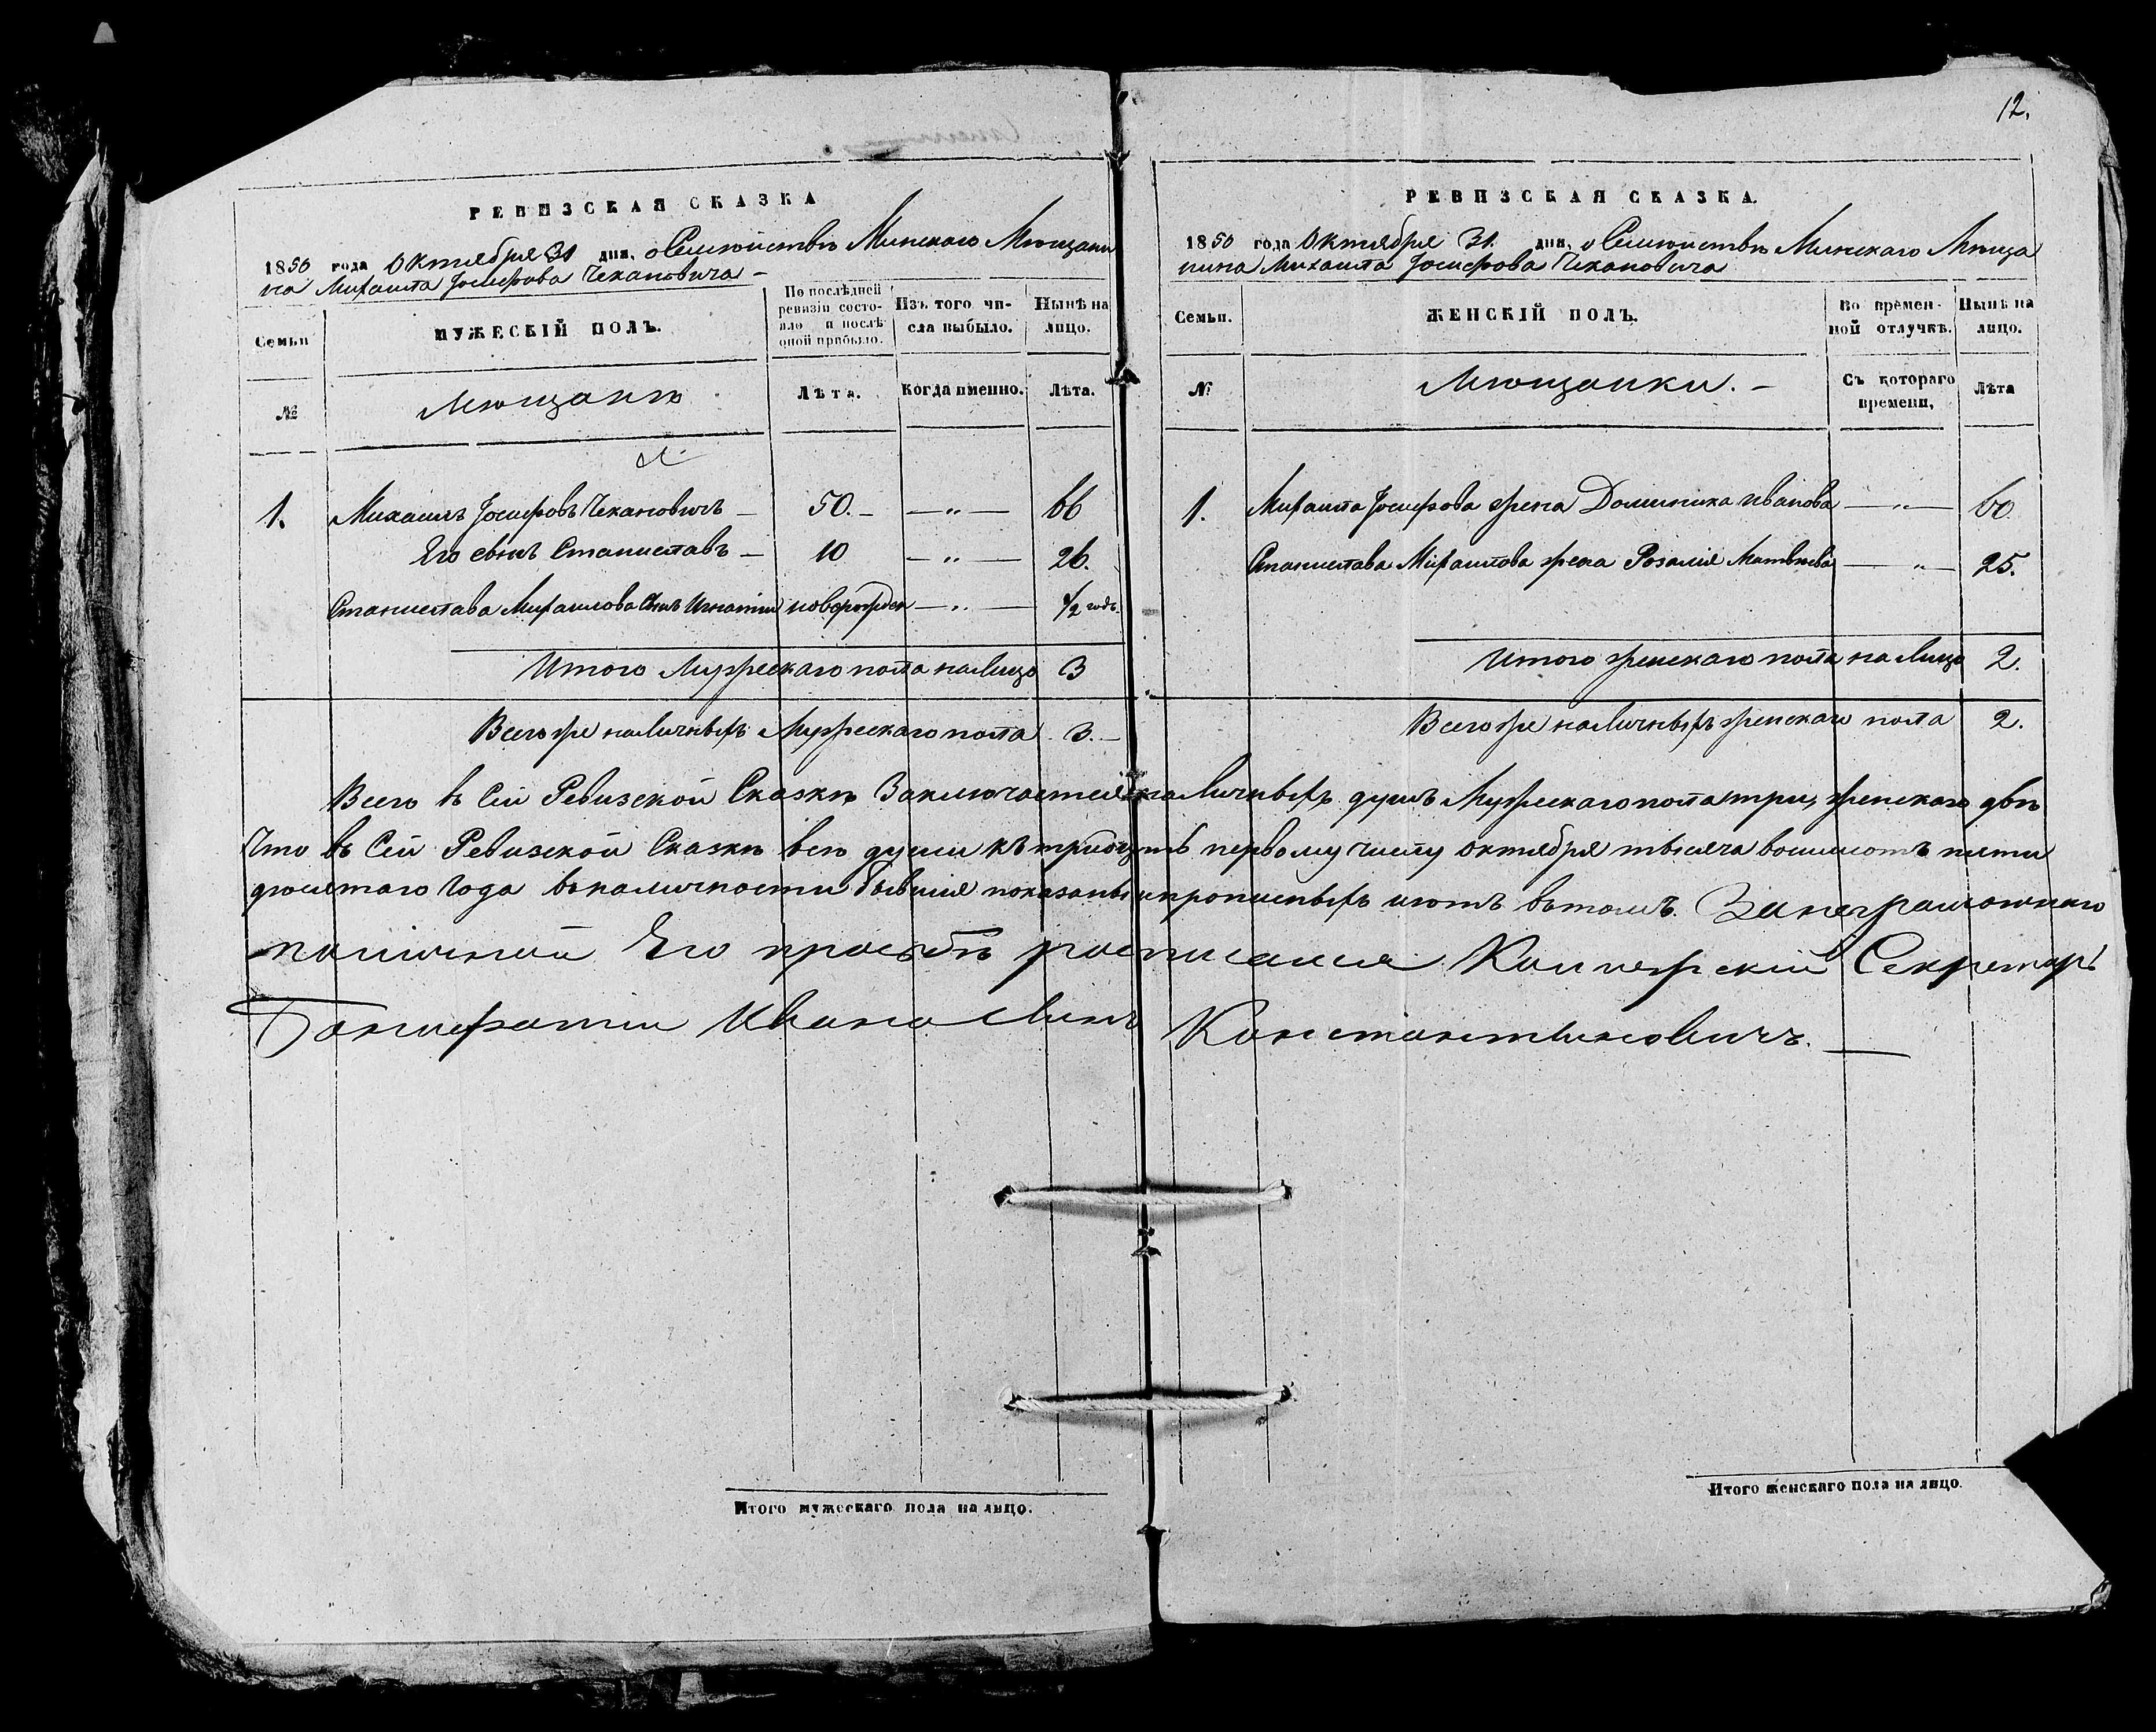 12.
РЕВИЗСКАЯ СКАЗКА
1850 года Октября 31 дня, о Семѣйствѣ Минскаго Мѣщани
на Михаила Іосифова Чехановича
Семьи
МУЖЕСКІЙ ПОЛЪ.
По послѣдней ревизіи состо-
яло и послѣ
оной прибыло.
Изъ того чи-
сла выбыло.
Нынѣ на
лицо.
№
Мѣщанѣ
Лѣта.
Когда именно.
Лѣта.
1. Михаилъ Іосифовъ Чехановичъ — 50. — — „ — 66
Его сынъ Станиславъ — 10 — „ — 26.
Станислава Михаилова Сынъ Игнатій новорожден — „ — 1/2 годъ.
Итого Мужескаго пола на Лицо 3
Всего же наличныхъ Мужескаго пола 3. —
РЕВИЗСКАЯ СКАЗКА.
1850 года Октября 31. дня, о Семѣйствѣ Минскаго Мѣща
нина Михаила Іосифова Чехановича
Семьи.
ЖЕНСКІЙ ПОЛЪ.
Во времен-
ной отлучкѣ.
Нынѣ на
лицо.
№
Мѣщанки. —
Съ котораго
времени,
Лѣта
1. Михаила Іосифова жена Доминика Иванова — „ — 60.
Станислава Михаилова жена Розалія Матвѣева — „ — 25.
Итого женскаго пола на Лицо 2.
Всего же наличныхъ женскаго пола 2.
Всего въ Сей Ревизской Сказкѣ Заключается наличныхъ душъ Мужескаго пола три, женскаго двѣ
Что въ Сей Ревизской Сказкѣ всѣ души къ тридцать первому числу октября тысяча восемсотъ пяти
десятаго Года въ наличности бывшія показаны и прописныхъ нѣтъ въ томъ. За неграмотнаго
по личной Его прозбѣ росписался Коллежскій Секретарь
Бонифатій Ивановъ Сынъ Константиновичъ. —
Итого мужескаго пола на лицо.
Итого женскаго пола на лицо.